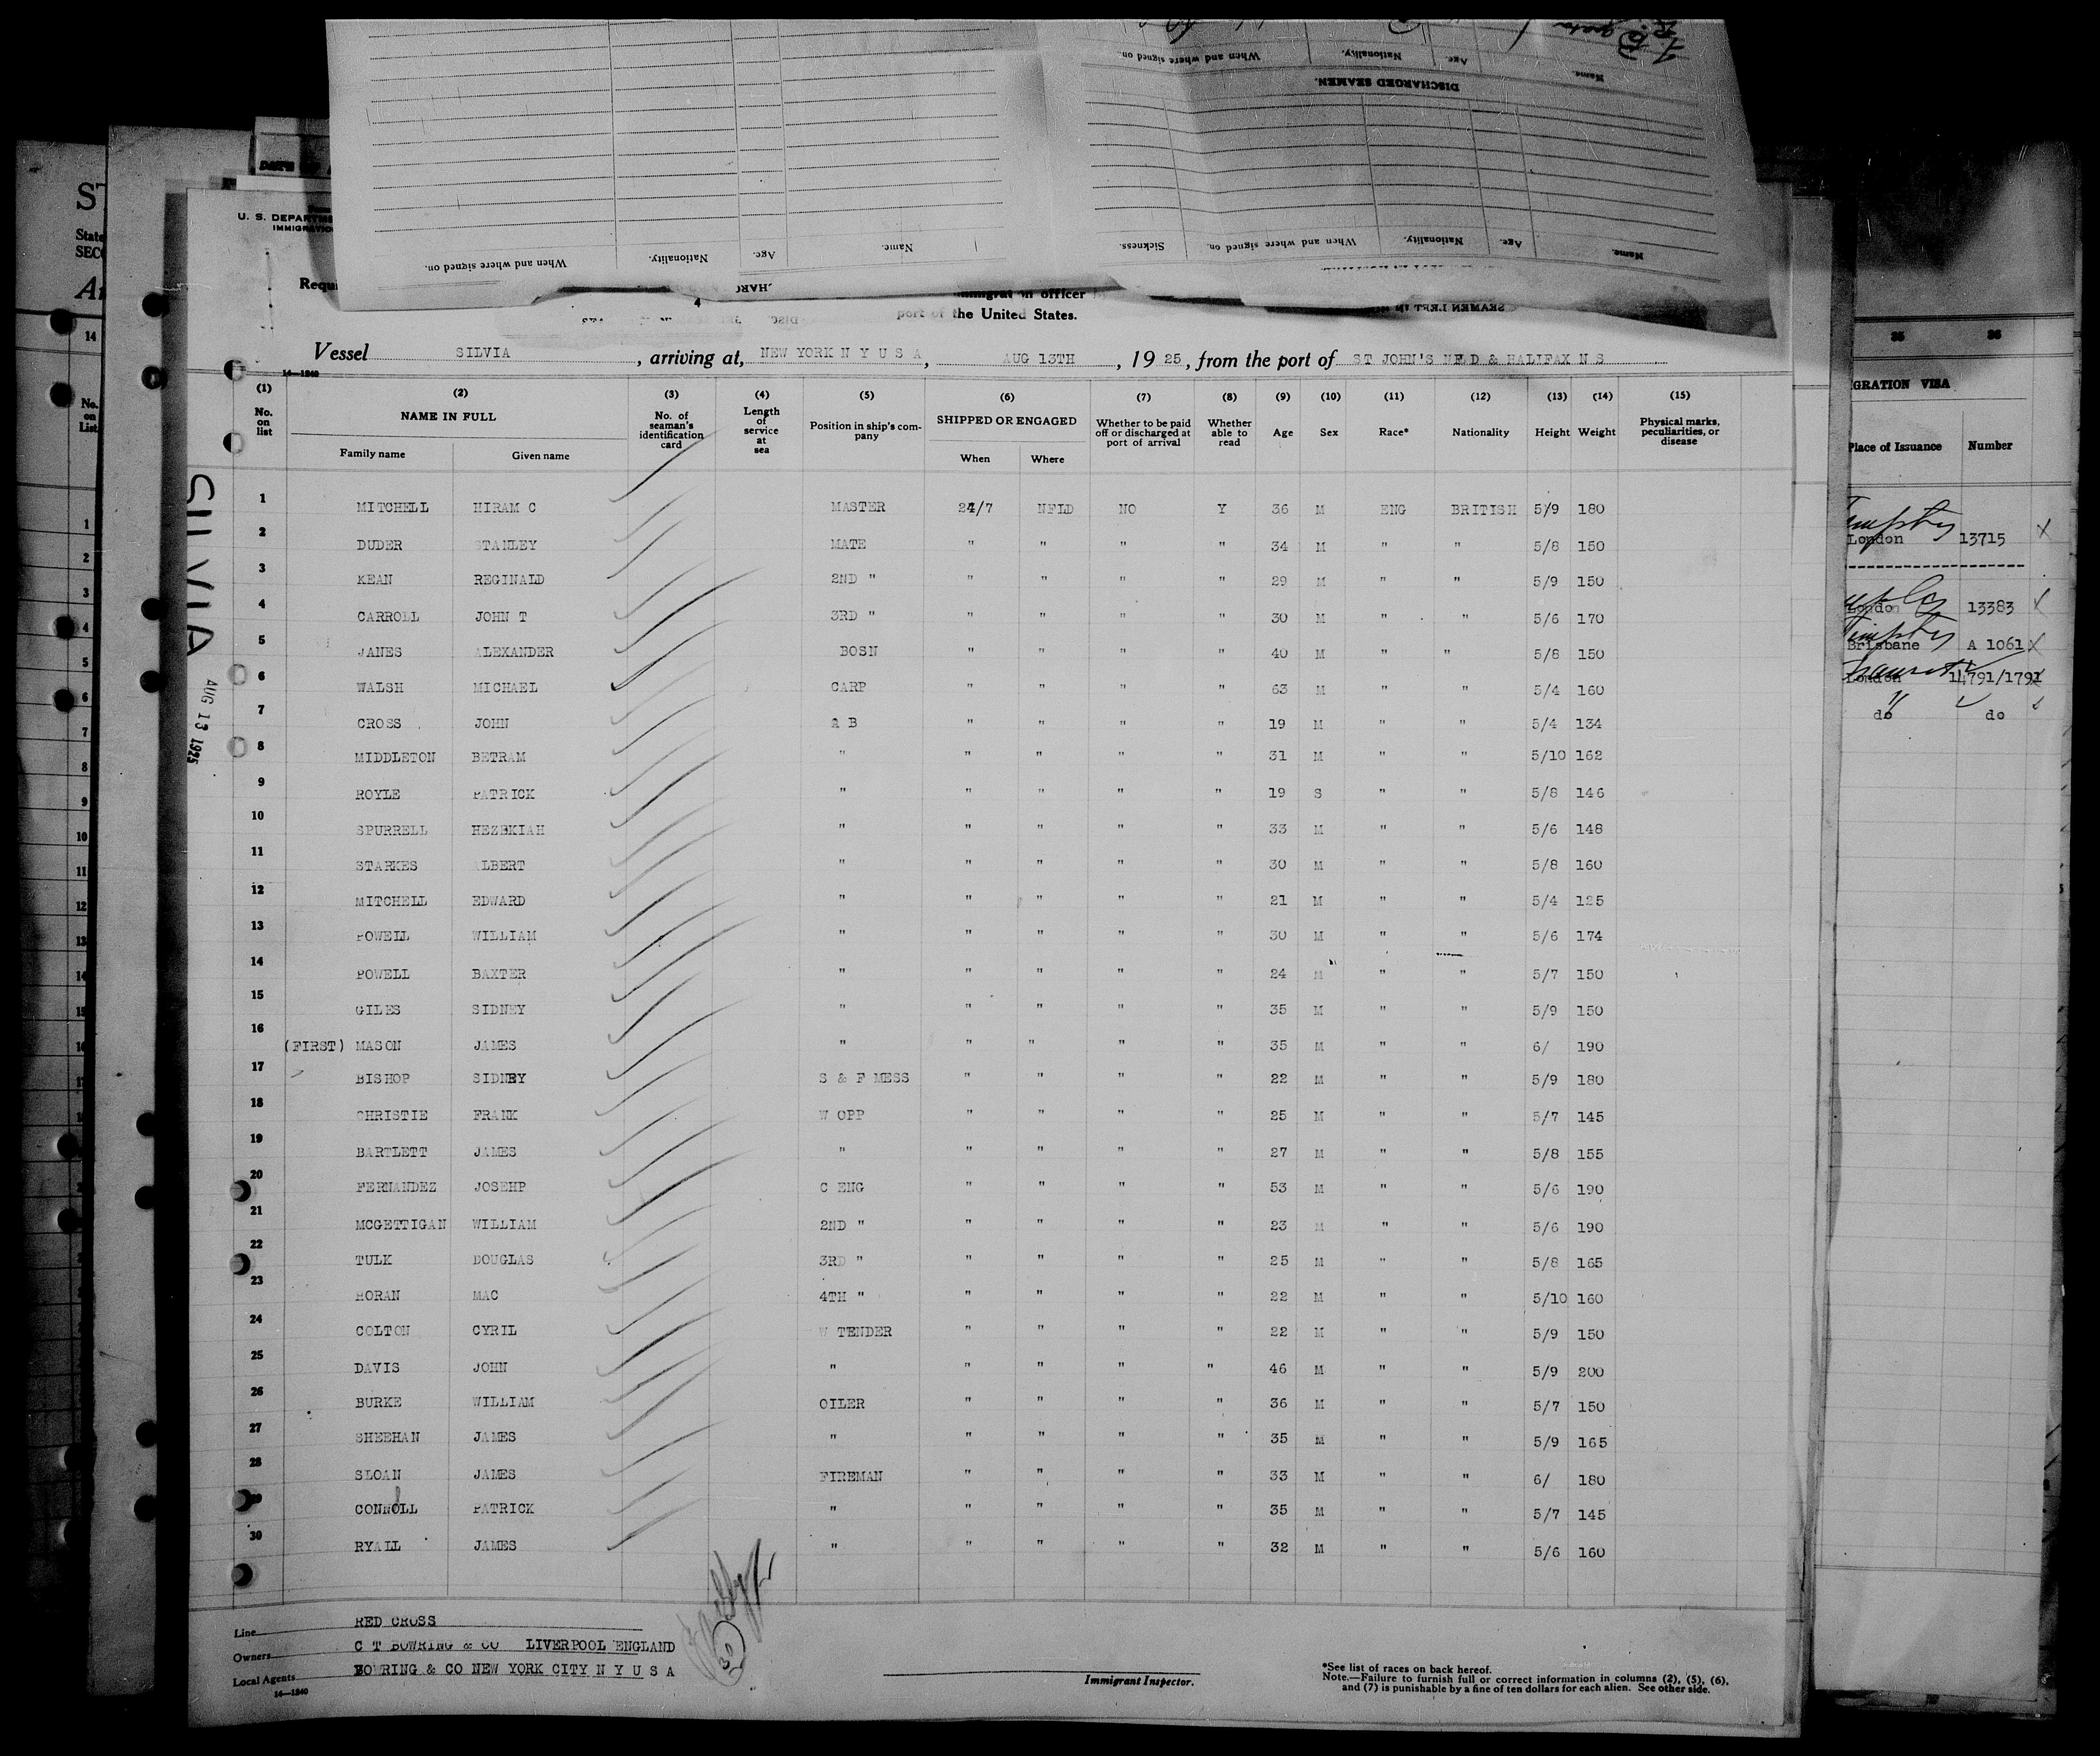 When and where signed on.
Nationality.
Age.
Name.
DISCHARGED SEAMEN.
When and where signed on.
Nationality.
Age.
Name.
Sickness.
When and where signed on.
Nationality.
Age.
Name.
SEAMEN LEFT IN
U. S. DEPARTM
IMMIGRATIO
Requi
officer
port of the United States.
Vessel SILVIA, arriving at, NEW YORK N Y U S A, AUG 13TH, 19 25, from the port of ST JOHN'S NFLD & HALIFAX N S
14—1240
(1) (2) (3) (4) (5) (6) (7) (8) (9) (10) (11) (12) (13) (14) (15)
No. on list
NAME IN FULL
Family name Given name
No. of seaman's identification card
Length of service at sea
Position in ship's company
SHIPPED OR ENGAGED
When Where
Whether to be paid off or discharged at port of arrival
Whether able to read
Age Sex Race* Nationality Height Weight
Physical marks, peculiarities, or disease
1 MITCHELL HIRAM C MASTER 24/7 NFLD NO Y 36 M ENG BRITISH 5/9 180
2 DUDER STANLEY MATE " " " " 34 M " " 5/8 150
3 KEAN REGINALD 2ND " " " " " 29 M " " 5/9 150
4 CARROLL JOHN T 3RD " " " " " 30 M " " 5/6 170
5 JANES ALEXANDER BOSN " " " " 40 M " " 5/8 150
6 WALSH MICHAEL CARP " " " " 63 M " " 5/4 160
7 CROSS JOHN A B " " " " 19 M " " 5/4 134
8 MIDDLETON BETRAM " " " " " 31 M " " 5/10 162
9 ROYLE PATRICK " " " " " 19 S " " 5/8 146
10 SPURRELL HEZEKIAH " " " " " 33 M " " 5/6 148
11 STARKES ALBERT " " " " " 30 M " " 5/8 160
12 MITCHELL EDWARD " " " " " 21 M " " 5/4 125
13 POWELL WILLIAM " " " " " 30 M " " 5/6 174
14 POWELL BAXTER " " " " " 24 M " " 5/7 150
15 GILES SIDNEY " " " " " 35 M " " 5/9 150
16 (FIRST) MASON JAMES " " " " " 35 M " " 6/ 190
17 BISHOP SIDNEY S & F MESS " " " " 22 M " " 5/9 180
18 CHRISTIE FRANK W OPP " " " " 25 M " " 5/7 145
19 BARTLETT JAMES " " " " " 27 M " " 5/8 155
20 FERNANDEZ JOSEHP C ENG " " " " 53 M " " 5/6 190
21 MCGETTIGAN WILLIAM 2ND " " " " " 23 M " " 5/6 190
22 TULK DOUGLAS 3RD " " " " " 25 M " " 5/8 165
23 HORAN MAC 4TH " " " " " 22 M " " 5/10 160
24 COLTON CYRIL W TENDER " " " " 22 M " " 5/9 150
25 DAVIS JOHN " " " " " 46 M " " 5/9 200
26 BURKE WILLIAM OILER " " " " 36 M " " 5/7 150
27 SHEEHAN JAMES " " " " " 35 M " " 5/9 165
28 SLOAN JAMES FIREMAN " " " " 33 M " " 6/ 180
CONNOLL PATRICK " " " " " 35 M " " 5/7 145
30 RYALL JAMES " " " " " 32 M " " 5/6 160
SILVIA
AUG 13 1925
Line RED CROSS
Owners C T BOWRING & CO LIVERPOOL ENGLAND
Local Agents BOWRING & CO NEW YORK CITY N Y U S A
14—1240
30
Immigrant Inspector.
*See list of races on back hereof.
Note.—Failure to furnish full or correct information in columns (2), (5), (6),
and (7) is punishable by a fine of ten dollars for each alien. See other side.
State
SECO
14
No. on List
1
2
3
4
5
6
7
8
9
10
11
12
13
14
15
16
35 36
GRATION VISA
Place of Issuance Number
London 13715
London 13383
Brisbane A 1061
London 14791/1791
do do